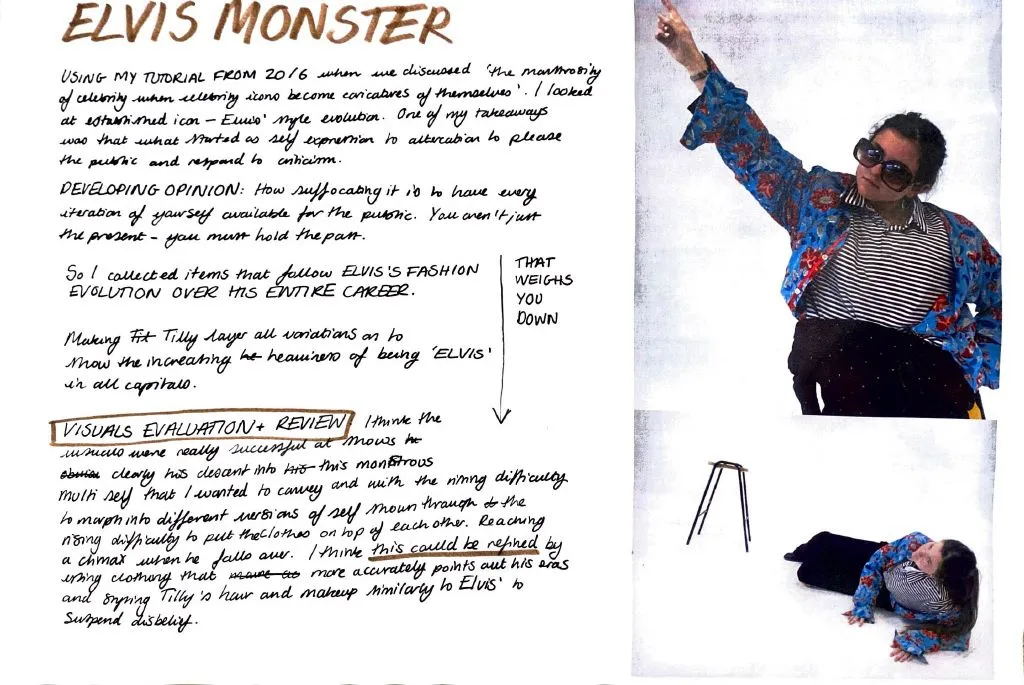 ELVIS MONSTER
USING MY TUTORIAL FROM 2016 when we discussed 'the monstrosity
of celebrity when celebrity icons become caricatures of themselves'. I looked
at established icon - Elvis' style evolution. One of my takeaways
was that what started as self expression to altercation to please
the public and respond to criticism.
DEVELOPING OPINION: How suffocating it is to have every
iteration of yourself available for the public. You aren't just
the present - you must hold the past.
So I collected items that follow ELVIS'S FASHION
EVOLUTION OVER HIS ENTIRE CAREER.
THAT
WEIGHS
YOU
DOWN
Making Fit Tilly layer all variations on to
show the increasing he heaviness of being 'ELVIS'
in all capitals.
VISUALS EVALUATION + REVIEW I think the
visuals were really successful at shows
clearly his descent into his this monstrous
multi self that I wanted to convey and with the rising difficulty
to morph into different versions of self shown through the
rising difficulty to put the clothes on top of each other. Reaching
a climax when he falls over. I think this could be refined by
using clothing that more accurately points out his eras
and styling Tilly's hair and makeup similarly to Elvis' to
suspend disbelief.